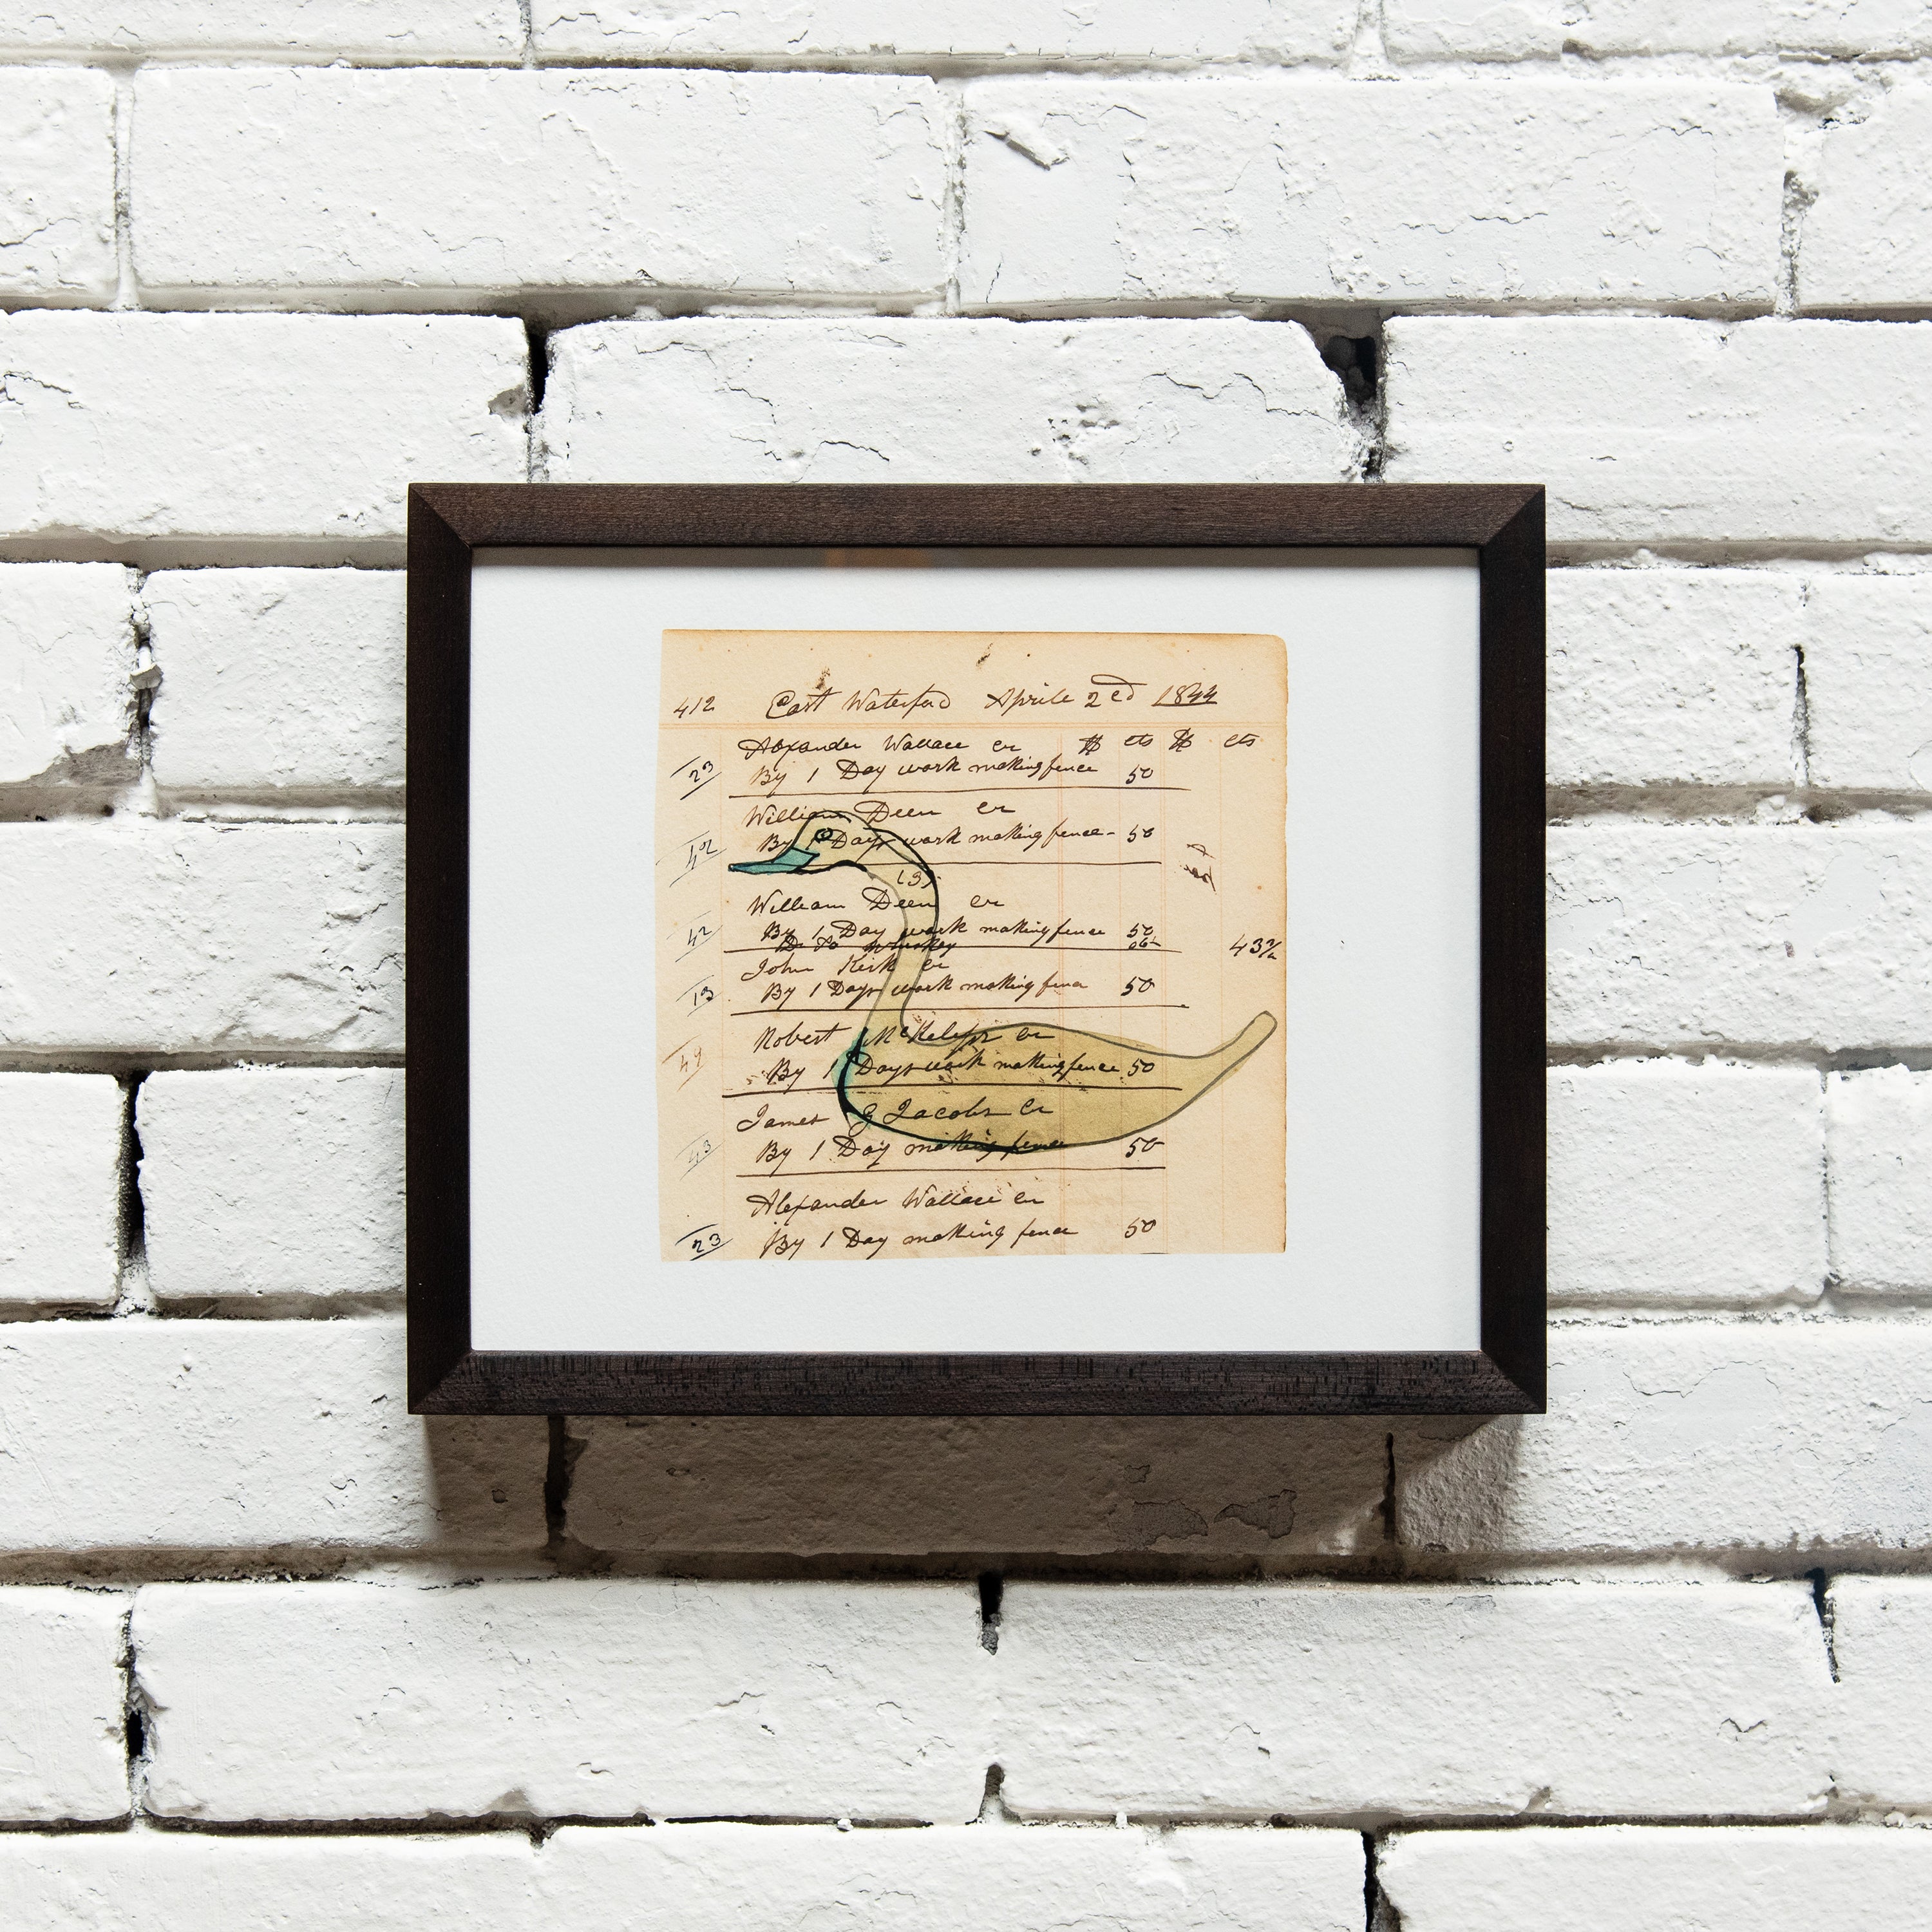 412 East Waterford Aprile 2ed 1844
Alexander Wallace cr $ cts $ cts
23 By 1 Day work making fence 50
William Deen cr
42 By 1 Day work making fence - 50
William Deen cr
42 By 1 Day work making fence 50
Do To whiskey 06¼
43¾
John Kirk cr
13 By 1 Days work making fence 50
Robert cr
By 1 Days work making fence 50
James G Jacobs Cr
43 By 1 Day making fence 50
Alexander Wallace Cr
23 By 1 Day making fence 50